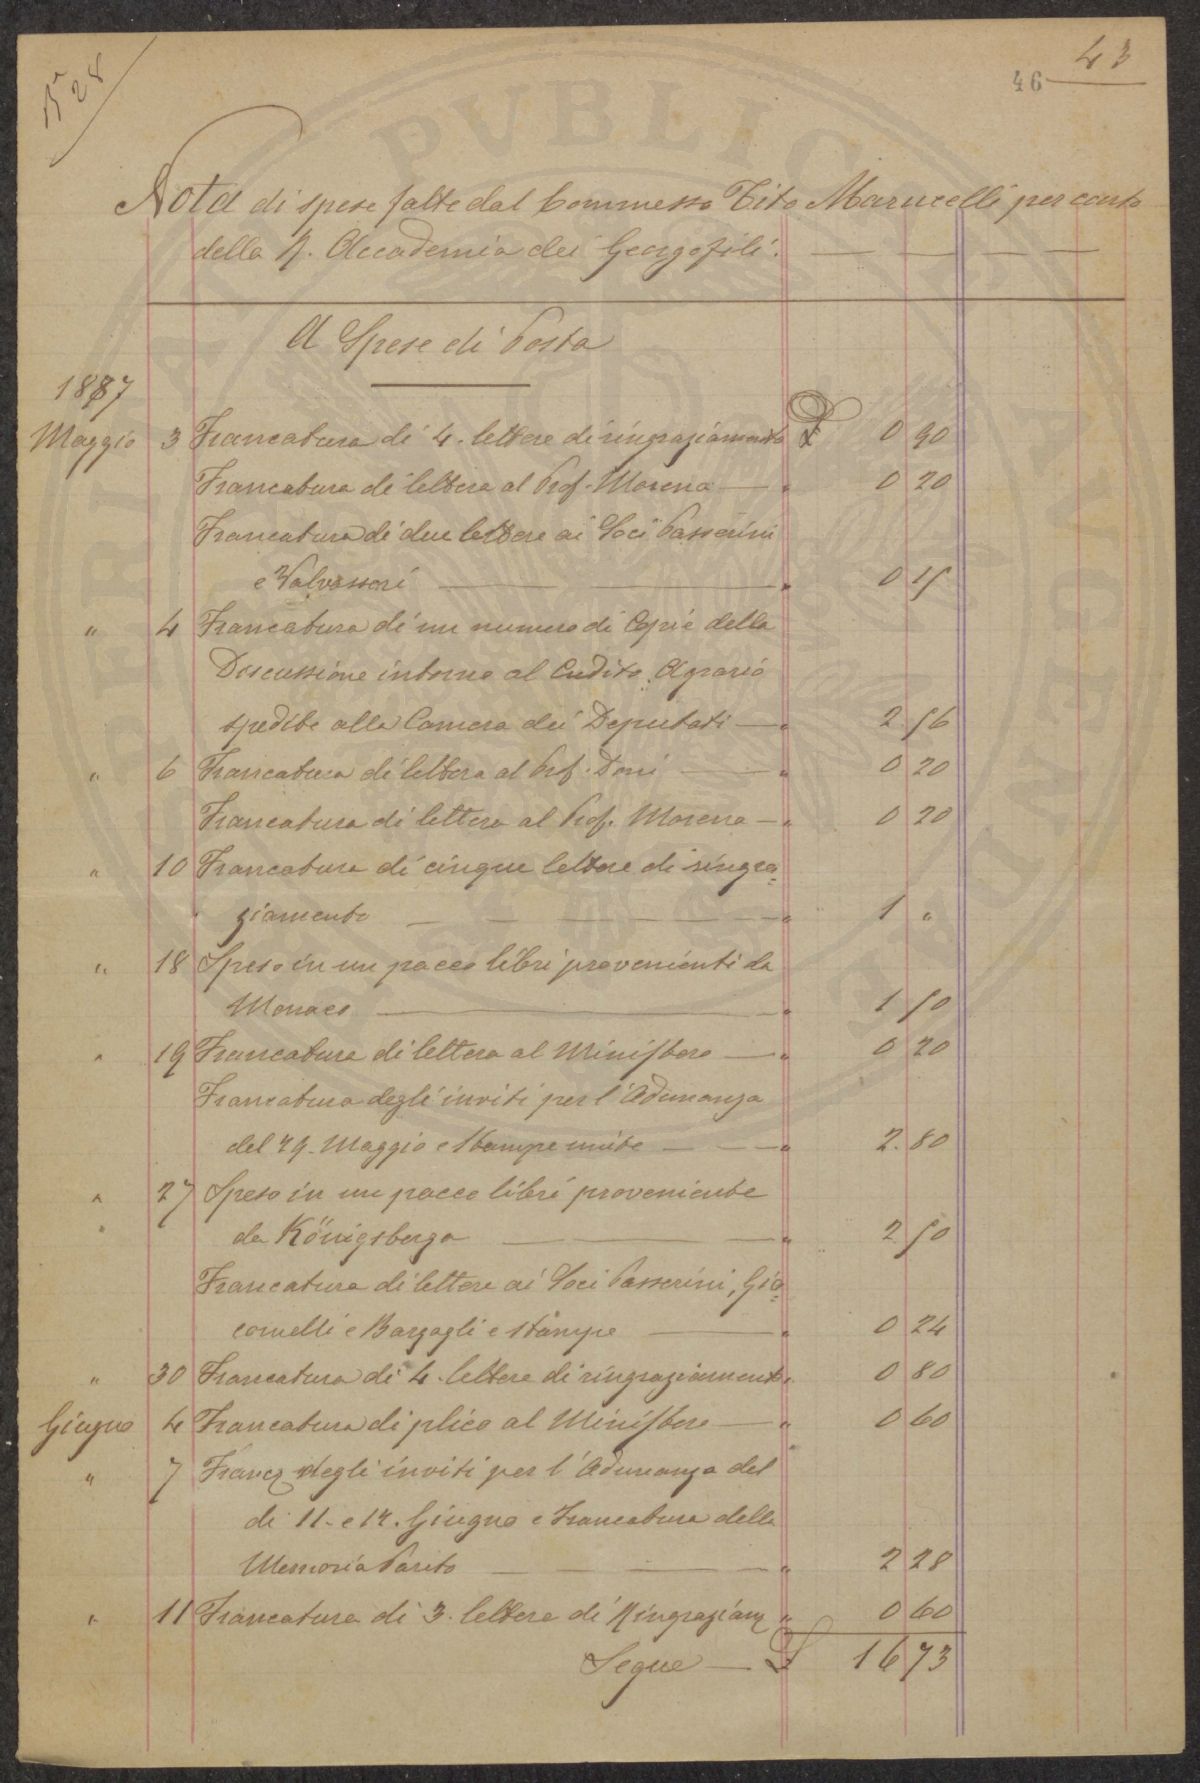 N° 28
43
46
Nota di spese fatte dal Commesso Tito Marucelli per conto
della R. Accademia dei Georgofili.
A Spese di Posta
1887
Maggio 3 Francatura di 4. lettere di ringraziamento £ 0 90
Francatura di lettera al Prof. Morena — " 0 20
Francatura di due lettere ai Soci Passerini
e Valvassori — " 0 15
" 4 Francatura di un numero di Copie della
Discussione intorno al Credito Agrario
spedite alla Camera dei Deputati — " 2 56
" 6 Francatura di lettera al Prof. Doni — " 0 20
Francatura di lettera al Prof. Morena — " 0 20
" 10 Francatura di cinque lettere di ringra=
ziamento — " 1 "
" 18 Speso in un pacco libri provenienti da
Monaco — " 1 50
" 19 Francatura di lettera al Ministero — " 0 20
Francatura degli inviti per l'Adunanza
del 29. Maggio e Stampe unite — " 2. 80
" 27 Speso in un pacco libri proveniente
" da Königsberga — " 2 50
Francatura di lettere ai Soci Passerini, Gia=
comelli e Bargagli e stampe — " 0 24
" 30 Francatura di 4. lettere di ringraziamento " 0 80
Giugno 4 Francatura di plico al Ministero — " 0 60
" 7 Franca degli inviti per l'Adunanza del
di 11. e 12. Giugno e Francatura della
Memoria Pareto — " 2 28
" 11 Francatura di 3. lettere di Ringraziam " 0 60
Segue — £ 16 73